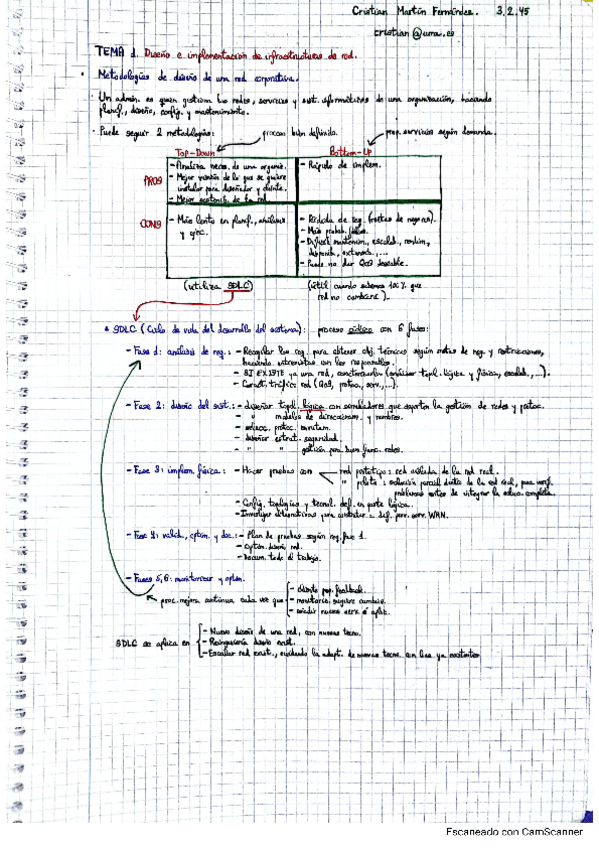 Cristian Martín Fernández. 3.2.45
cristian@uma.es
TEMA 1. Diseño e implementación de infraestructuras de red.
· Metodologías de diseño de una red corporativa.
· Un admin. es quien gestiona las redes, servicios y sist. informáticos de una organización, haciendo
planif., diseño, config. y mantenimiento.
· Puede seguir 2 metodologías: proceso bien definido. prop. servicios según demanda.
Top-Down Bottom-Up
PROS
- Analiza neces. de una organiz.
- Mejor versión de lo que se quiere
instalar para diseñador y cliente.
- Mejor
- Rápido de implem.
CONS
- Más lento en planif., análisis
y ejec.
- Pérdida de seg. (metas de negocio).
- Más probab. fallos.
- Difícil mantenim., escalab., rendim.,
disponib., extensib., ...
- Puede no dar QoS deseable.
(utiliza SDLC)
(útil cuando sabemos 100% que
red no cambiará).
SDLC (Ciclo de vida del desarrollo del sistema): proceso cíclico con 6 fases:
- Fase 1: análisis de req.: - Recopilar los req. para obtener obj. técnicos según metas de neg. y restricciones,
haciendo entrevistas con los responsables.
- SI EXISTE ya una red, caracterizarla (analizar topol. lógica y física, escalab., ...).
- Caract. tráfico red (QoS, protoc., serv., ...).
- Fase 2: diseño del sist.: - diseñar topol. lógica con simuladores que soporten la gestión de redes y protoc.
- " modelos de direccionam. y nombres.
- selecc. protoc. enrutam.
- diseñar estrat. seguridad.
- " " gestión para buen func. redes.
- Fase 3: implem. física: - Hacer pruebas con red prototipo: red aislada de la red real.
" piloto: solución parcial dentro de la red real, para verif.
problemas antes de integrar la soluc. completa.
- Config. topologías y tecnol. def. en parte lógica.
- Investigar alternativas para contratar a dif. prov. serv. WAN.
- Fase 4: valid., optim. y doc.: - Plan de pruebas según req. fase 1.
- Optim. diseño red.
- Docum. todo el trabajo.
- Fases 5, 6: monitorizar y optim.
proc. mejora continua cada vez que
- cliente prop. feedback.
- monitoriz. sugiere cambios.
- añadir nuevo serv. o aplic.
SDLC se aplica en
- Nuevo diseño de una red, con nuevas tecno.
- Reingeniería diseño exist.
- Escalar red exist., evitando la adapt. de nuevas tecno. con las ya existentes
Escaneado con CamScanner